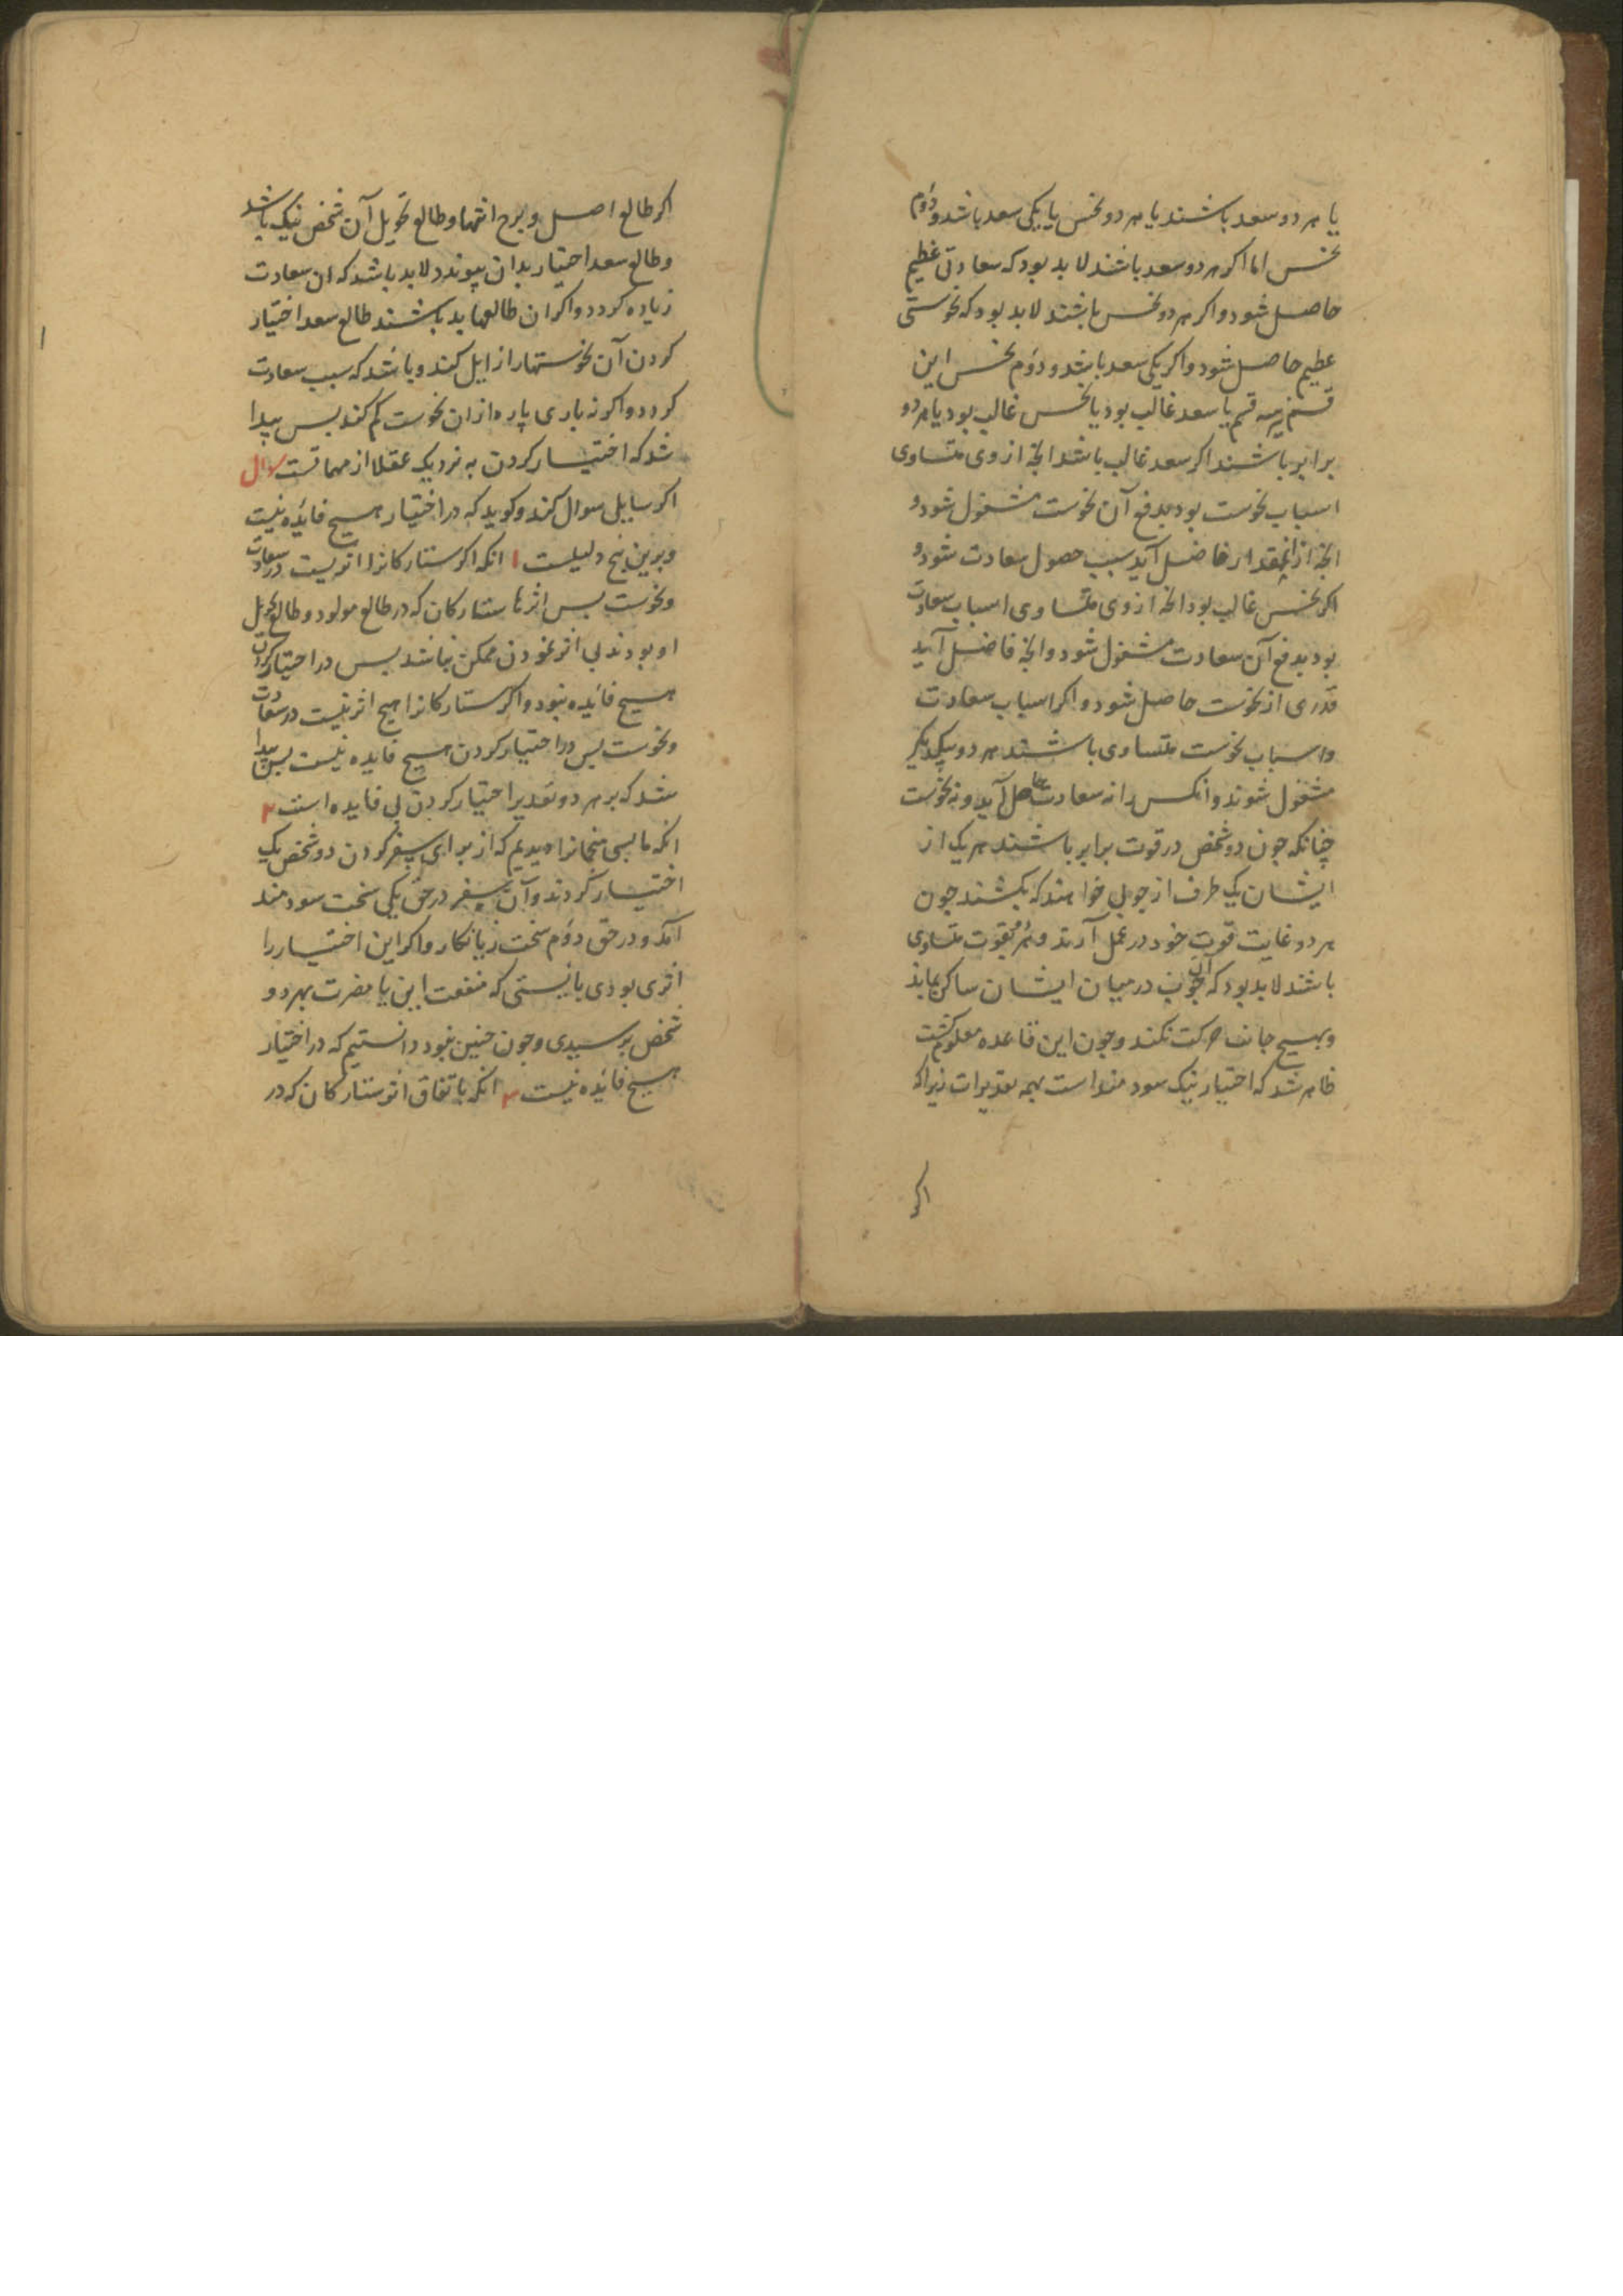 یا هر دو سعد باشند یا هر دو نحس یا یکی سعد باشد و دوم
نحس اما اکر هر دو سعد باشند لا بد بود که سعادتی عظیم
حاصل شود و اکر هر دو نحس باشند لا بد بود که نحوستی
عظیم حاصل شود و اکر یکی سعد باشد و دوم نحس این
قسم بر سه قسم یا سعد غالب بود یا نحس غالب بود یا هر دو
برابر باشند اکر سعد غالب باشد انچ از وی متساوی
اسباب نحوست بود بدفع آن نحوست مشغول شود و
انچ از انمقدار فاضل آید سبب حصول سعادت شود و
اکر نحس غالب بود انچ از وی متساوی اسباب سعادت
بود بدفع آن سعادت مشغول شود و انچ فاضل آید
قدری از نحوست حاصل شود و اکر اسباب سعادت
و اسباب نحوست متساوی باشند هر دو بیکدیکر
مشغول شوند و انکس را نه سعادت حاصل آید و نه نحوست
چنانکه جون دو شخص در قوت برابر باشند هر یک از
ایشان یک طرف از جوبی خواهند که بکشند جون
هر دو غایت قوت خود در عمل آرند و هر دو بقوت متساوی
باشند لا بد بود که آن جوب در میان ایشان ساکن بماند
و بهیچ جانب حرکت نکند و جون این قاعده معلوم کشت
ظاهر شد که اختیار نیک سودمند است بهمه تقدیرات زیرا که
اکر
اکر طالع اصل و برج انتها و طالع تحویل آن شخص نیک باشد
و طالع سعد اختیار بدان پیوندد لا بد باشد که ان سعادت
زیاده کردد و اکر ان طالعها بد باشند طالع سعد اختیار
کردن آن نحوستها را زایل کند و باشد که سبب سعادت
کردد و اکر نه باری پاره از ان نحوست کم کند بس پیدا
شد که اختیار کردن به نزدیک عقلا از مهماتست سوال
اکر سایلی سوال کند و کوید که در اختیار هیچ فائده نیست
و برین پنج دلیلست ۱ انکه اکر ستارکانرا اثریست در سعادت
و نحوست بس اثرها ستارکان که در طالع مولود و طالع تحویل
او بودند بی اثر نمودن ممکن نباشد بس در اختیار کردن
هیچ فائده نبود و اکر ستارکانرا هیچ اثر نیست در سعادت
و نحوست بس در اختیار کردن هیچ فایده نیست بس پیدا
شد که بر هر دو تقدیر اختیار کردن بی فایده است ۲
انکه ما بسی منجمانرا دیدیم که از برای سفر کردن دو شخص یک
اختیار کردند و آن سفر در حق یکی سخت سودمند
آمد و در حق دوم سخت زیانکار و اکر این اختیار را
اثری بودی بایستی که منفعت این یا مضرت بهر دو
شخص برسیدی و جون جنین نبود دانستیم که در اختیار
هیچ فائده نیست ۳ انکه باتفاق اثر ستارکان که در